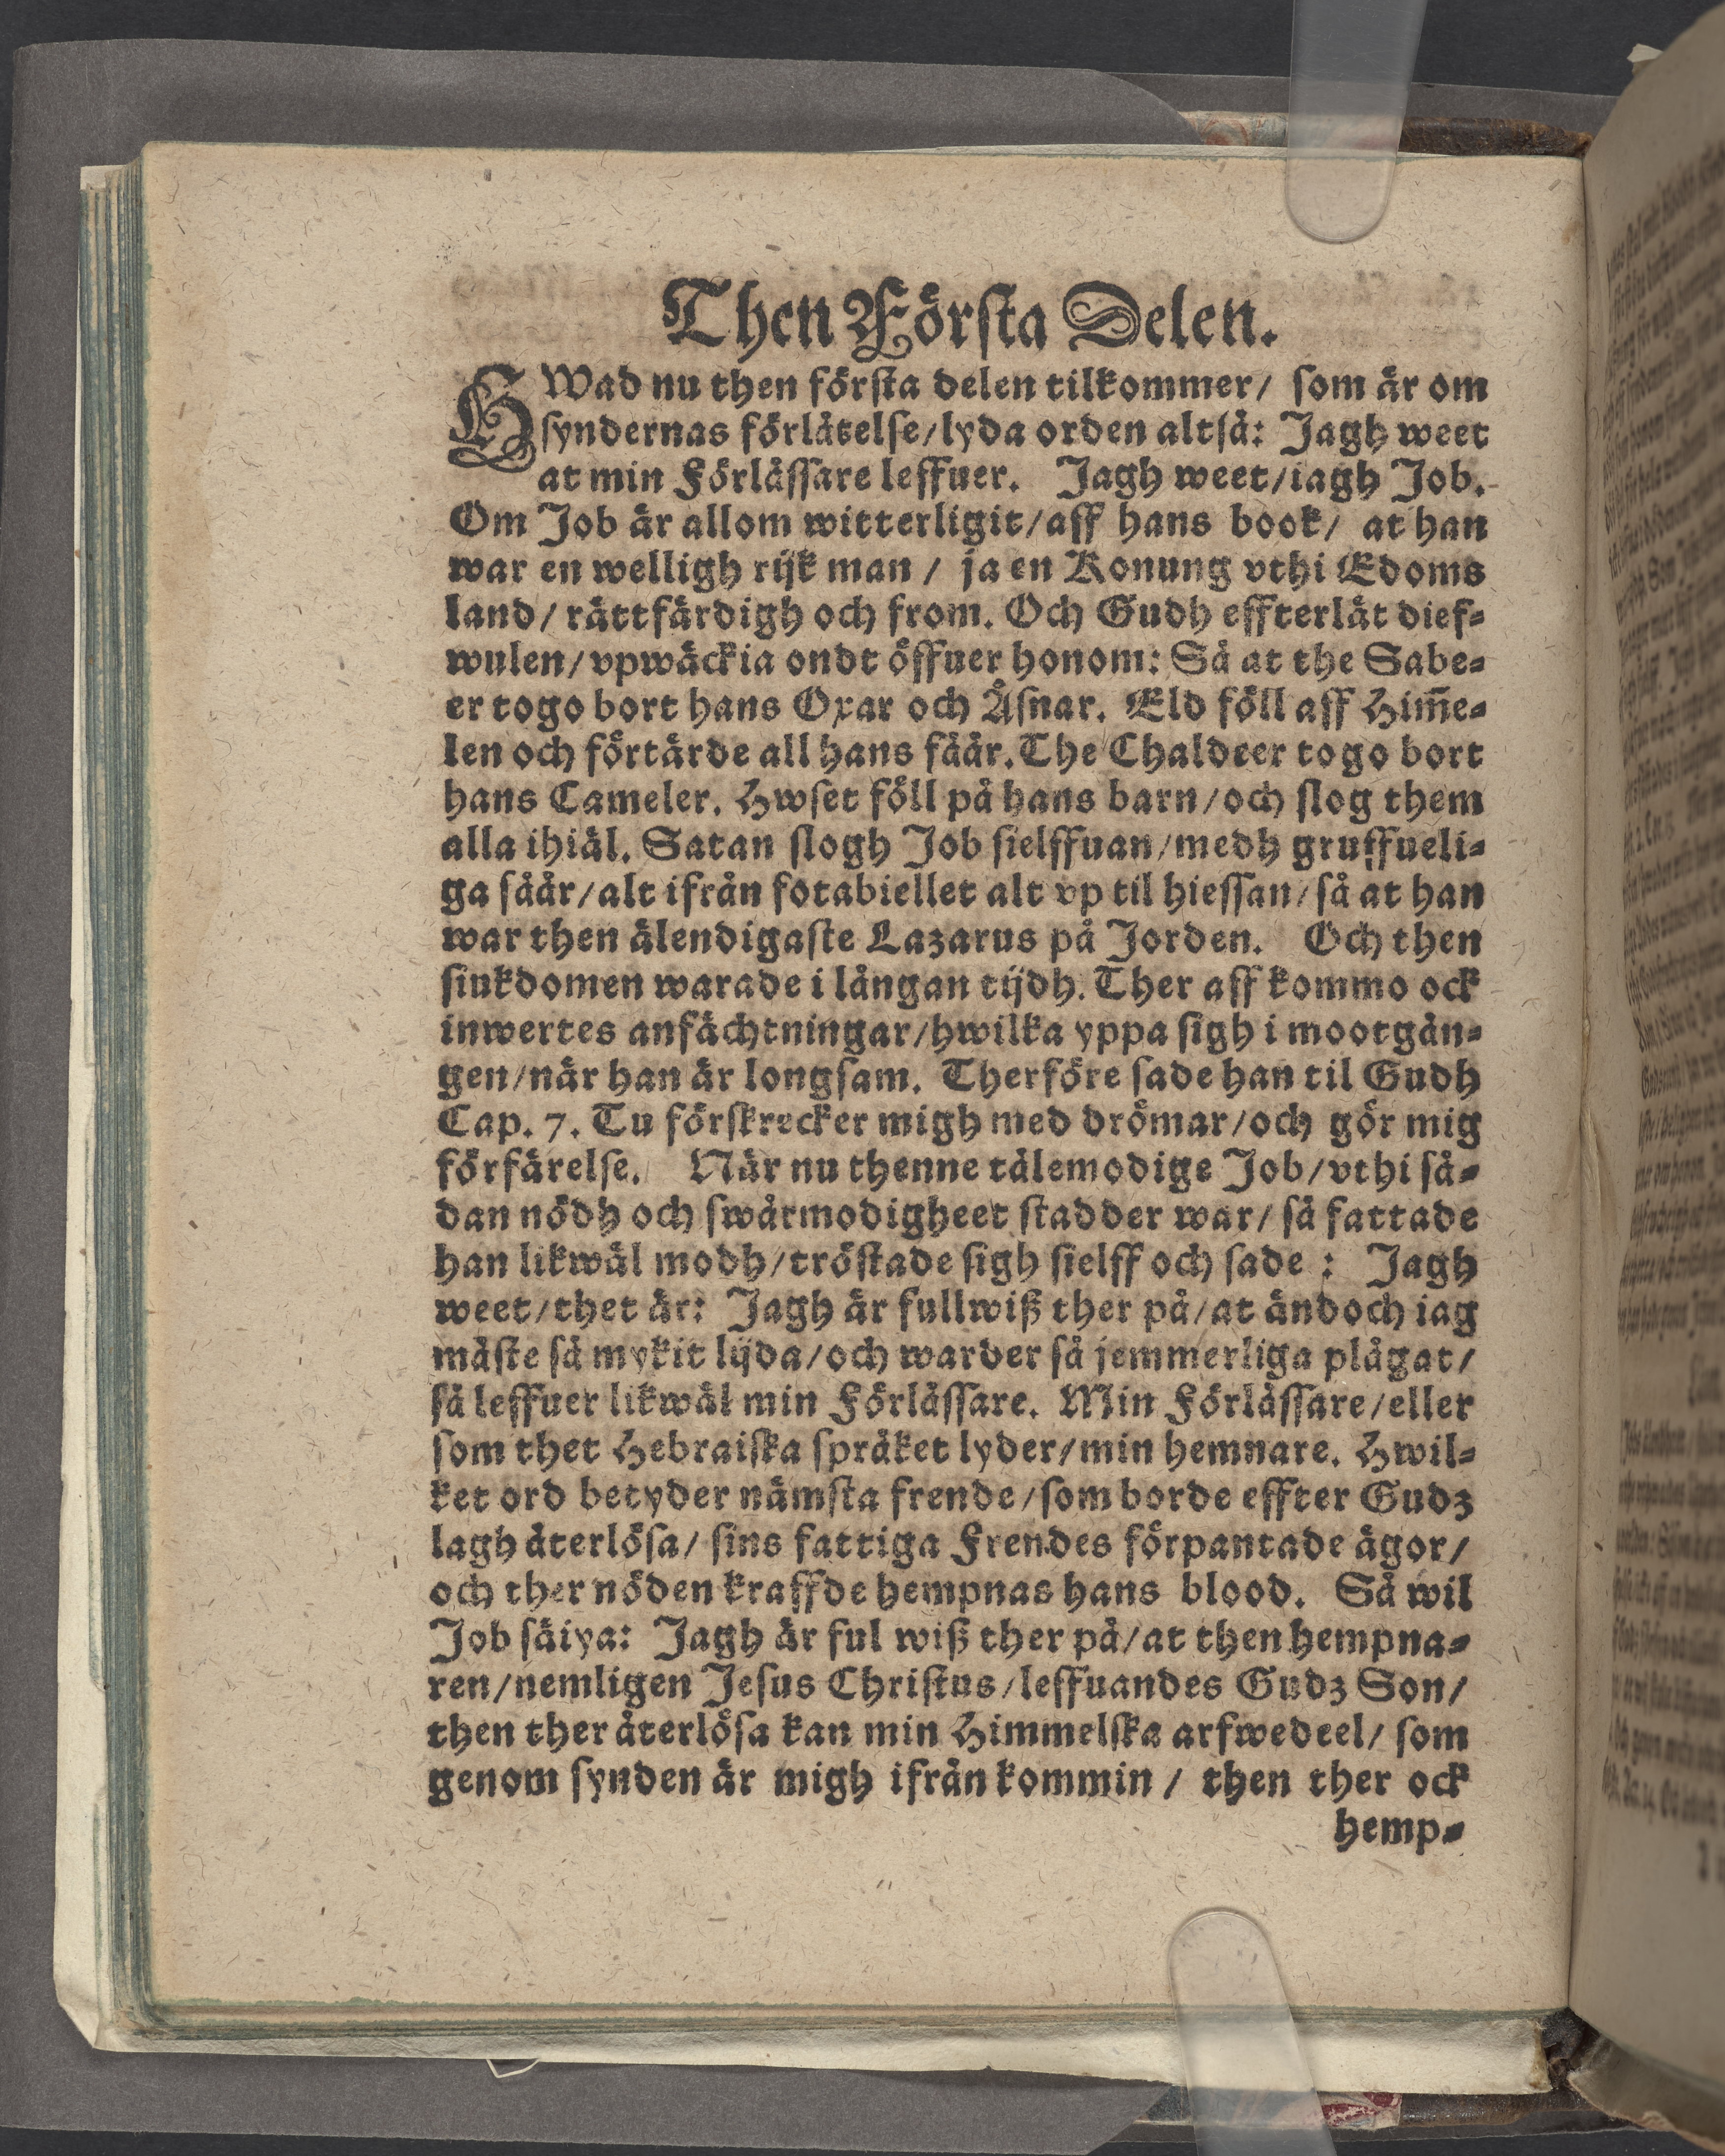 Then Förſta Delen.
HWad nu then förſta delen tilkommer/ ſom är om
ſyndernas förlåtelſe/lyda orden altſå: Jagh weet
at min Förlåſſare leffuer. Jagh weet/iagh Job.
Om Job är allom witterligit/aff hans book/ at han
war en welligh rijk man / ja en Konung vthi Edoms
land/ rättfärdigh och from. Och Gudh effterlåt dief-
wulen/vpwäckia ondt öffuer honom: Så at the Sabe-
er togo bort hans Oxar och Åſnar. Eld föll aff Him̅e-
len och förtärde all hans fåår. The Chaldeer togo bort
hans Cameler. Hwſet föll på hans barn/och ſlog them
alla ihiäl. Satan ſlogh Job ſielffuan/medh gruffueli-
ga ſåår/alt ifrån fotabiellet alt vp til hieſſan/ſå at han
war then älendigaſte Lazarus på Jorden. Och then
ſiukdomen warade i långan tijdh. Ther aff kommo ock
inwertes anfächtningar/hwilka yppa ſigh i mootgån-
gen/när han är longſam. Therföre ſade han til Gudh
Cap. 7. Tu förſkrecker migh med drömar/och gör mig
förfärelſe. När nu thenne tålemodige Job/vthi ſå-
dan nödh och ſwårmodigheet ſtadder war/ ſå fattade
han likwäl modh/tröſtade ſigh ſielff och ſade : Jagh
weet/thet är: Jagh är fullwiß ther på/at ändoch iag
måſte ſå mykit lijda/och warder ſå jemmerliga plågat/
ſå leffuer likwäl min Förlåſſare. Min Förlåſſare/eller
ſom thet Hebraiſka ſpråket lyder/min hemnare. Hwil-
ket ord betyder nämſta frende/ſom borde effter Gudz
lagh återlöſa/ ſins fattiga Frendes förpantade ägor/
och ther nöden kraffde hempnas hans blood. Så wil
Job ſäiya: Jagh är ful wiß ther på/at then hempna-
ren/nemligen Jeſus Chriſtus/leffuandes Gudz Son/
then ther återlöſa kan min Himmelſka arfwedeel/ ſom
genom ſynden är migh ifrån kommin / then ther ock
hemp-